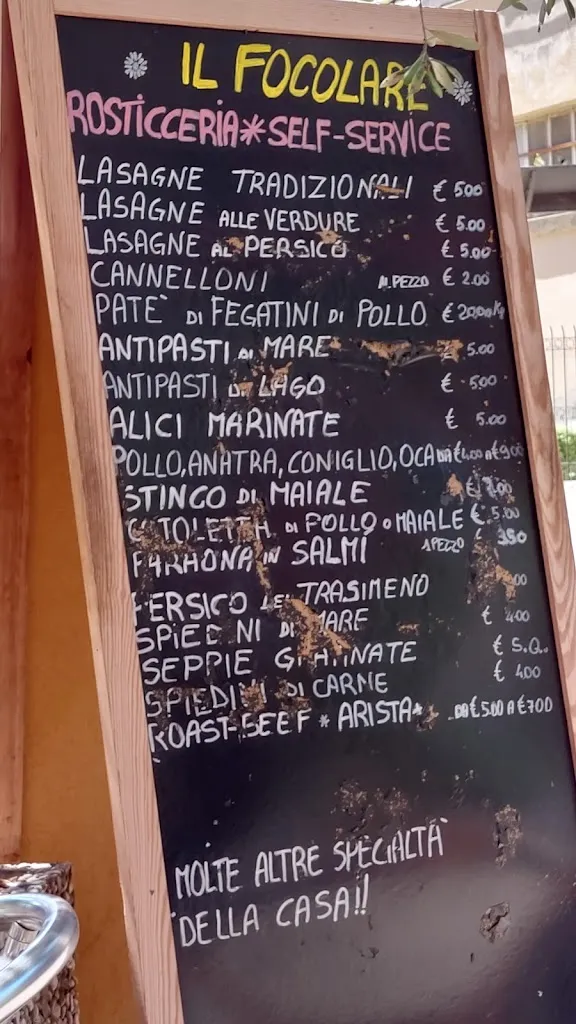 IL FOCOLARE
ROSTICCERIA*SELF-SERVICE
LASAGNE TRADIZIONALI € 5.00
LASAGNE ALLE VERDURE € 5.00
LASAGNE AL PERSICO € 5.00
CANNELLONI AL PEZZO € 2.00
PATE' DI FEGATINI DI POLLO €
ANTIPASTI DI MARE 5.00
ANTIPASTI DI LAGO € 5.00
ALICI MARINATE € 5.00
POLLO, ANATRA, CONIGLIO, OCA DA €4.00 A €9.00
STINCO DI MAIALE €
COTOLETTA DI POLLO O MAIALE € 5.00
FARAONA IN SALMÌ A PEZZO € 3.50
PERSICO DEL TRASIMENO
SPIEDINI DI MARE € 4.00
SEPPIE GRATINATE €
SPIEDINI DI CARNE € 4.00
ROAST-BEEF * ARISTA* DA €5.00 A €7.00
MOLTE ALTRE SPECIALTÀ
DELLA CASA!!